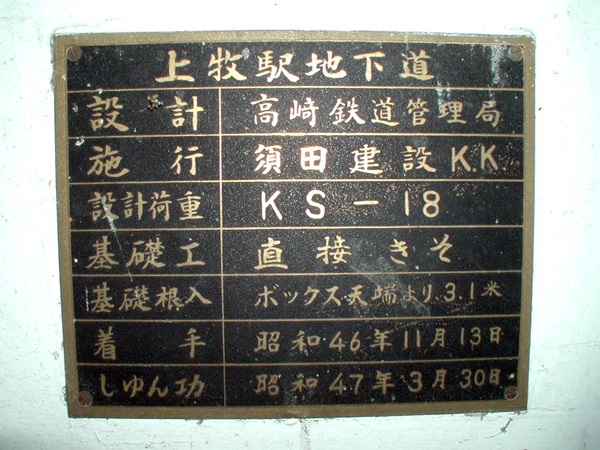 上牧駅地下道
設計 高崎鉄道管理局
施行 須田建設K.K
設計荷重 KS-18
基礎工 直接きそ
基礎根入 ボックス天端より3.1米
着手 昭和46年11月13日
しゆん功 昭和47年3月30日